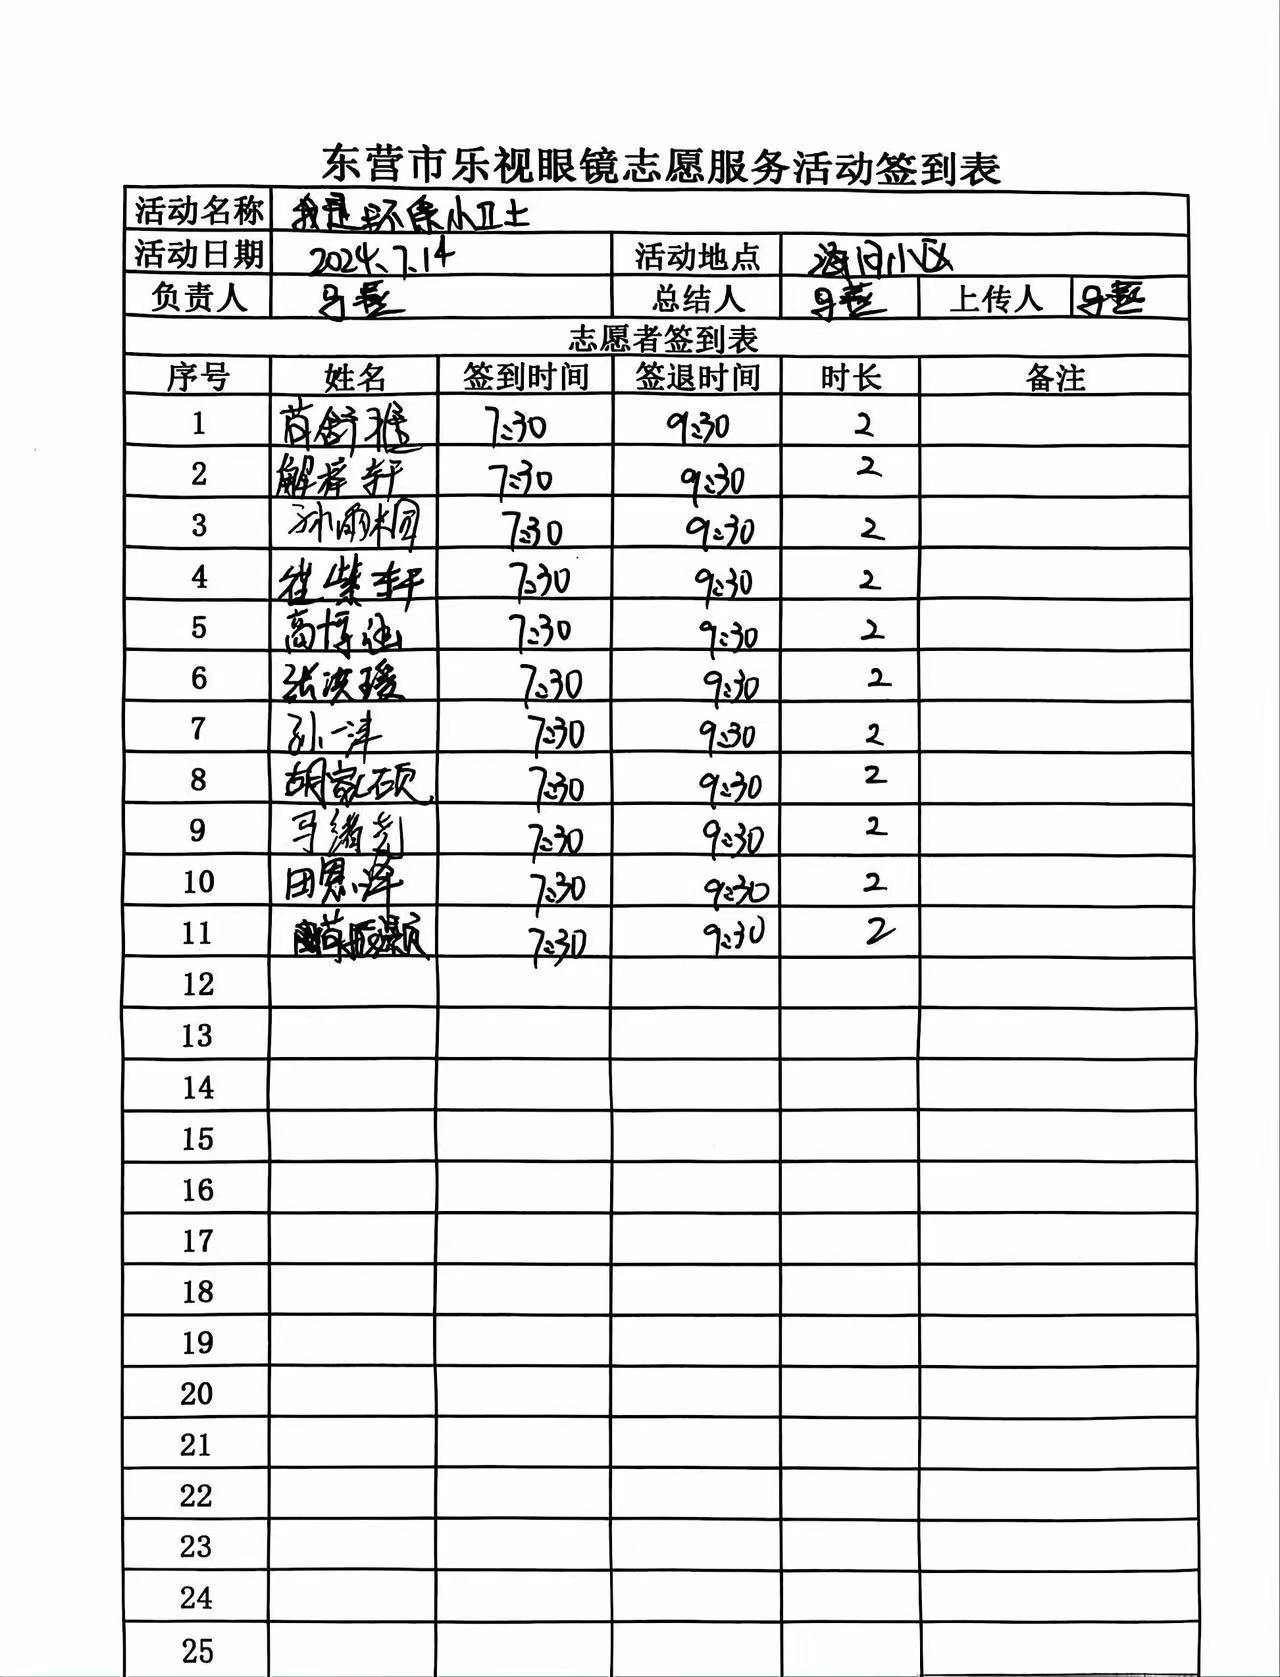 东营市乐视眼镜志愿服务活动签到表
活动名称 我是环保小卫士
活动日期 2024.7.14 活动地点 海河小区
负责人 总结人 上传人
志愿者签到表
序号 姓名 签到时间 签退时间 时长 备注
1 苘舒雅 7:30 9:30 2
2 解梓轩 7:30 9:30 2
3 孙雨桐 7:30 9:30 2
4 崔紫轩 7:30 9:30 2
5 高博涵 7:30 9:30 2
6 张洪瑗 7:30 9:30 2
7 孙一津 7:30 9:30 2
8 胡家硕 7:30 9:30 2
9 马绪尧 7:30 9:30 2
10 田恩泽 7:30 9:30 2
11 7:30 9:30 2
12
13
14
15
16
17
18
19
20
21
22
23
24
25